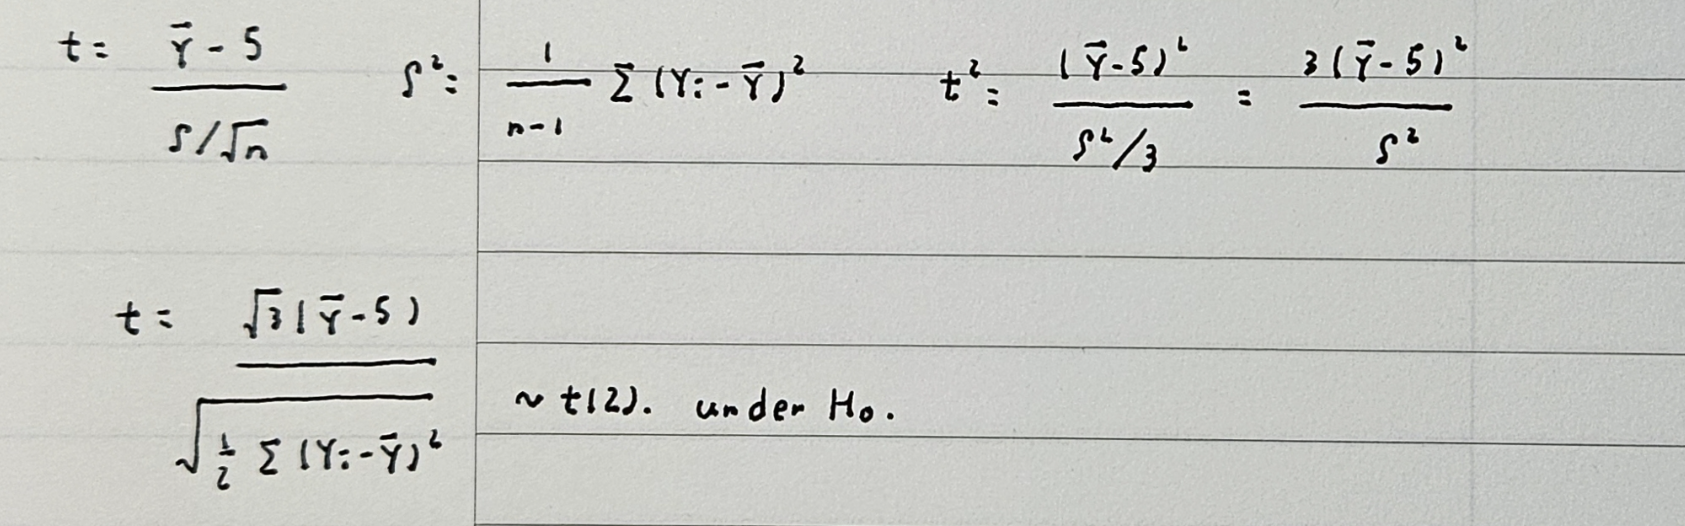 t = (Ȳ - 5) / (S/√n)   S² = 1/(n-1) Σ (Yi - Ȳ)²   t² = (Ȳ-5)² / (S²/3) = 3(Ȳ-5)² / S²
t = √3(Ȳ-5) / √(1/2 Σ (Yi-Ȳ)²)   ~ t(2). under H₀.